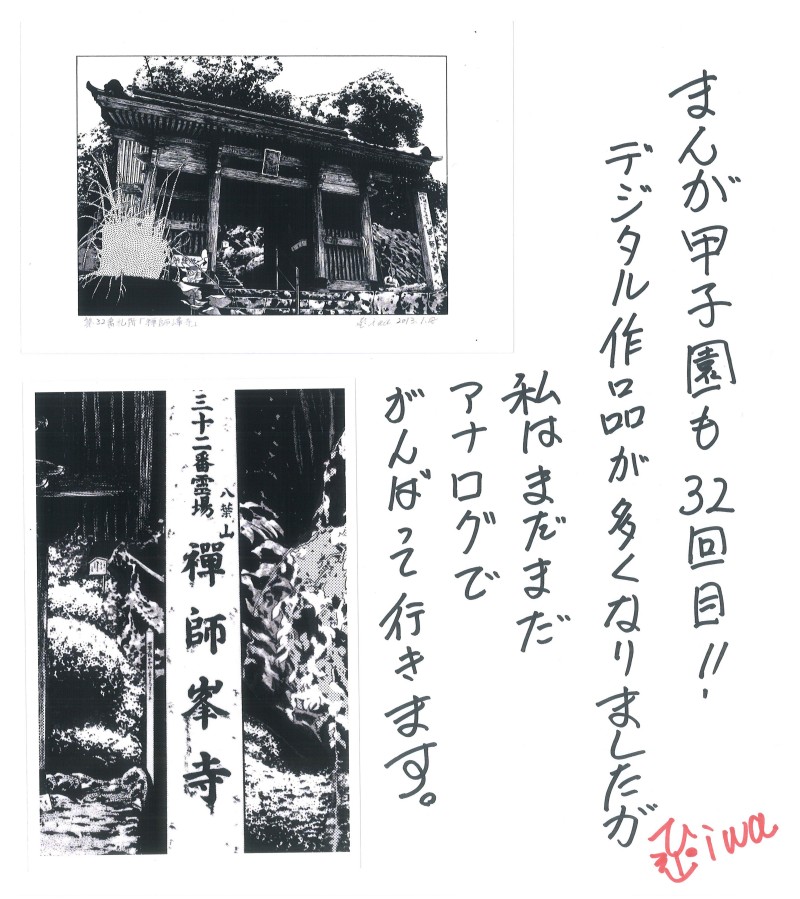 まんが甲子園も32回目!!
デジタル作品が多くなりましたが
私はまだまだ
アナログで
がんばって行きます。
iwa
2013.1.
三十二番霊場
八葉山
禅師峯寺